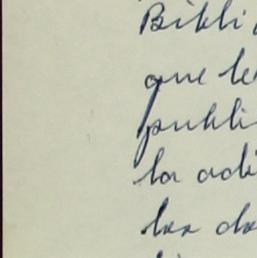 Bibli
que le
publi
la adi
los do